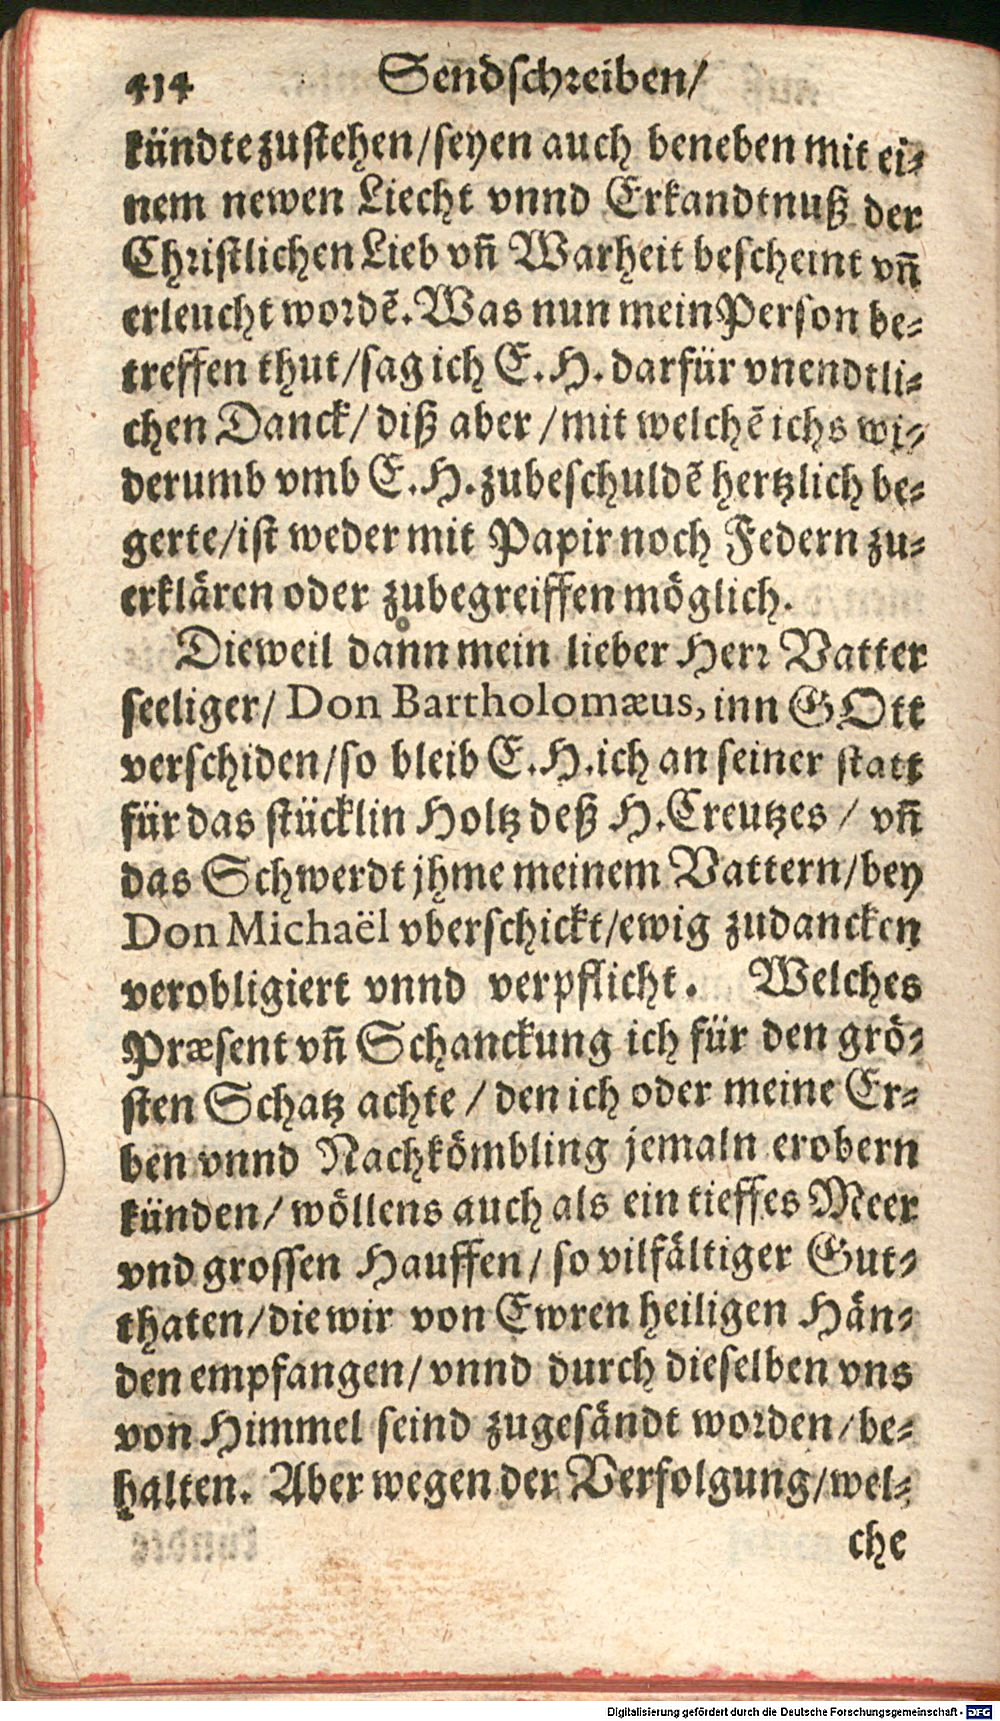 414 Sendschreiben/
kündte zustehen/seyen auch beneben mit ei-
nem newen Liecht vnnd Erkandtnuß der
Christlichen Lieb vñ Warheit bescheint vñ
erleucht wordẽ. Was nun mein Person be-
treffen thut/sag ich E. H. darfür vnendtli-
chen Danck/ diß aber /mit welchẽ ichs wi-
derumb vmb E. H. zubeschuldẽ hertzlich be-
gerte/ist weder mit Papir noch Federn zu-
erklären oder zubegreiffen möglich.
Dieweil dann mein lieber Herr Vatter
seeliger/ Don Bartholomæus, inn GOtt
verschiden/so bleib E. H. ich an seiner statt
für das stücklin Holtz deß H. Creutzes / vñ
das Schwerdt jhme meinem Vattern/bey
Don Michaël vberschickt/ewig zudancken
verobligiert vnnd verpflicht. Welches
Præsent vñ Schanckung ich für den grö-
sten Schatz achte / den ich oder meine Er-
ben vnnd Nachkömbling jemaln erobern
künden/ wöllens auch als ein tieffes Meer
vnd grossen Hauffen/ so vilfältiger Gut-
thaten/die wir von Ewren heiligen Hän-
den empfangen/ vnnd durch dieselben vns
von Himmel seind zugesändt worden/be-
halten. Aber wegen der Verfolgung/wel-
che
Digitalisierung gefördert durch die Deutsche Forschungsgemeinschaft - DFG